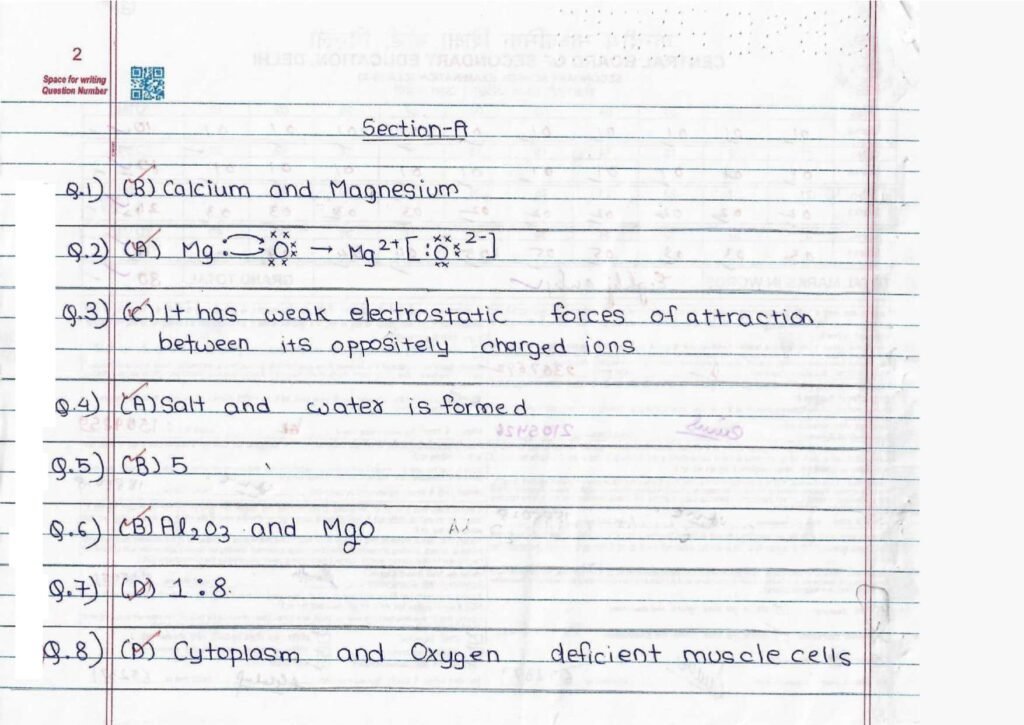 2
Space for writing
Question Number
Section-A
Q.1) (B) Calcium and Magnesium
Q.2) (A) Mg: → Mg²⁺ [:O:²⁻]
Q.3) (C) It has weak electrostatic forces of attraction
between its oppositely charged ions
Q.4) (A) Salt and water is formed
Q.5) (B) 5
Q.6) (B) Al₂O₃ and MgO
Q.7) (D) 1:8.
Q.8) (D) Cytoplasm and Oxygen deficient muscle cells